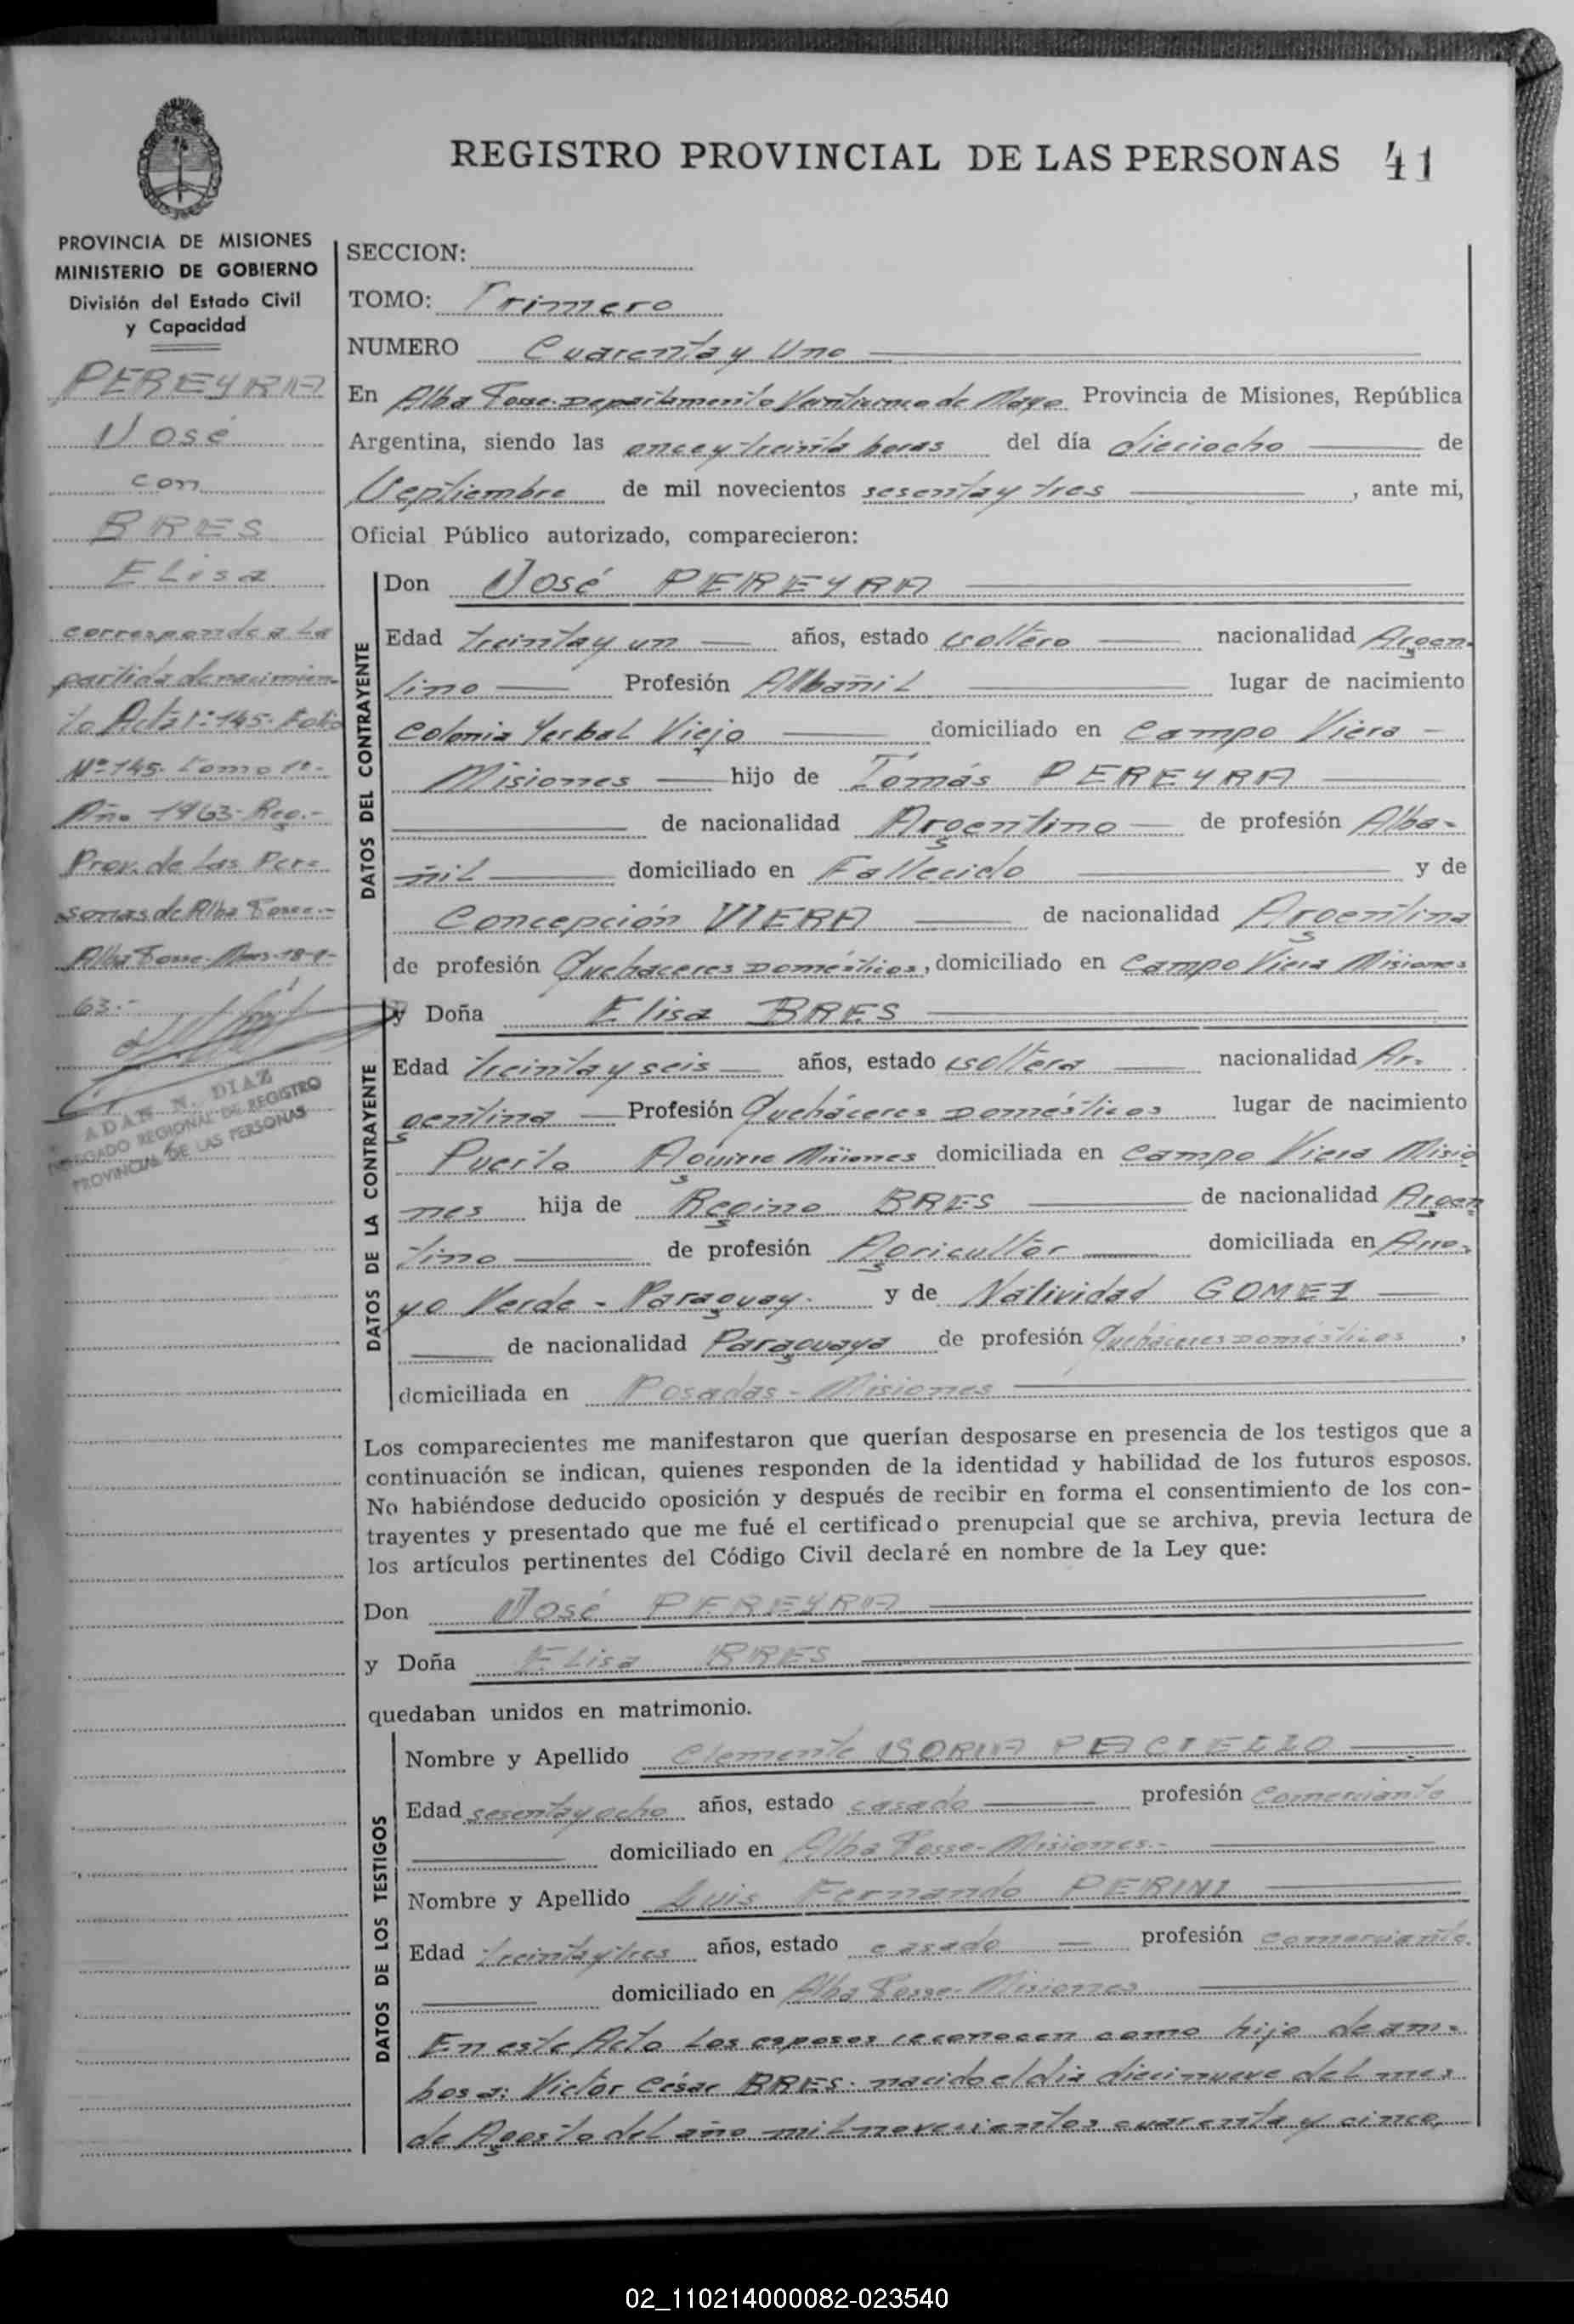 REGISTRO PROVINCIAL DE LAS PERSONAS 41
PROVINCIA DE MISIONES
MINISTERIO DE GOBIERNO
División del Estado Civil
y Capacidad
PEREYRA
José
con
BRES
Elisa
corresponde a la
partida de nacimien-
to Acta Nº 145. Folio
Nº 145. Tomo 1º-
Año 1963- Reg.-
Prov. de Las Per=
sonas de Alba Posse.-
Alba Posse- Mnes-18-9-
63.-
ADAN N. DIAZ
DELEGADO REGIONAL DE REGISTRO
PROVINCIAL DE LAS PERSONAS
SECCION:
TOMO: Primero
NUMERO Cuarenta y Uno
En Alba Posse. Departamento Veinticinco de Mayo Provincia de Misiones, República
Argentina, siendo las once y treinta horas del día dieciocho de
Septiembre de mil novecientos sesenta y tres , ante mi,
Oficial Público autorizado, comparecieron:
DATOS DEL CONTRAYENTE
Don José PEREYRA
Edad treinta y un años, estado soltero nacionalidad Argen-
tino Profesión Albañil lugar de nacimiento
Colonia Yerbal Viejo domiciliado en Campo Viera -
Misiones hijo de Tomás PEREYRA
de nacionalidad Argentino de profesión Alba-
ñil domiciliado en Fallecido y de
Concepción VIERA de nacionalidad Argentina
de profesión Quehaceres Domésticos, domiciliado en Campo Viera Misiones
DATOS DE LA CONTRAYENTE
y Doña Elisa BRES
Edad treinta y seis años, estado soltera nacionalidad Ar-
gentina Profesión Quehaceres Domésticos lugar de nacimiento
Puerto Aguirre Misiones domiciliada en Campo Viera Misio
nes hija de Regino BRES de nacionalidad Argen
tino de profesión Agricultor domiciliada en Arro-
yo Verde - Paraguay. y de Natividad GOMEZ
de nacionalidad Paraguaya de profesión Quehaceres Domésticos ,
domiciliada en Posadas - Misiones
Los comparecientes me manifestaron que querían desposarse en presencia de los testigos que a
continuación se indican, quienes responden de la identidad y habilidad de los futuros esposos.
No habiéndose deducido oposición y después de recibir en forma el consentimiento de los con-
trayentes y presentado que me fué el certificado prenupcial que se archiva, previa lectura de
los artículos pertinentes del Código Civil declaré en nombre de la Ley que:
Don José PEREYRA
y Doña Elisa BRES
quedaban unidos en matrimonio.
DATOS DE LOS TESTIGOS
Nombre y Apellido Clemente SORIA
Edad sesenta y ocho años, estado casado profesión Comerciante
domiciliado en Alba Posse- Misiones.-
Nombre y Apellido Luis Fernando PERINI
Edad treinta y tres años, estado casado profesión comerciante
domiciliado en Alba Posse- Misiones
En este Acto Los esposos reconocen como hijo de am-
bos a: Victor César BRES- nacido el dia diecinueve del mes
de Agosto del año mil novecientos cuarenta y cinco,
02_110214000082-023540